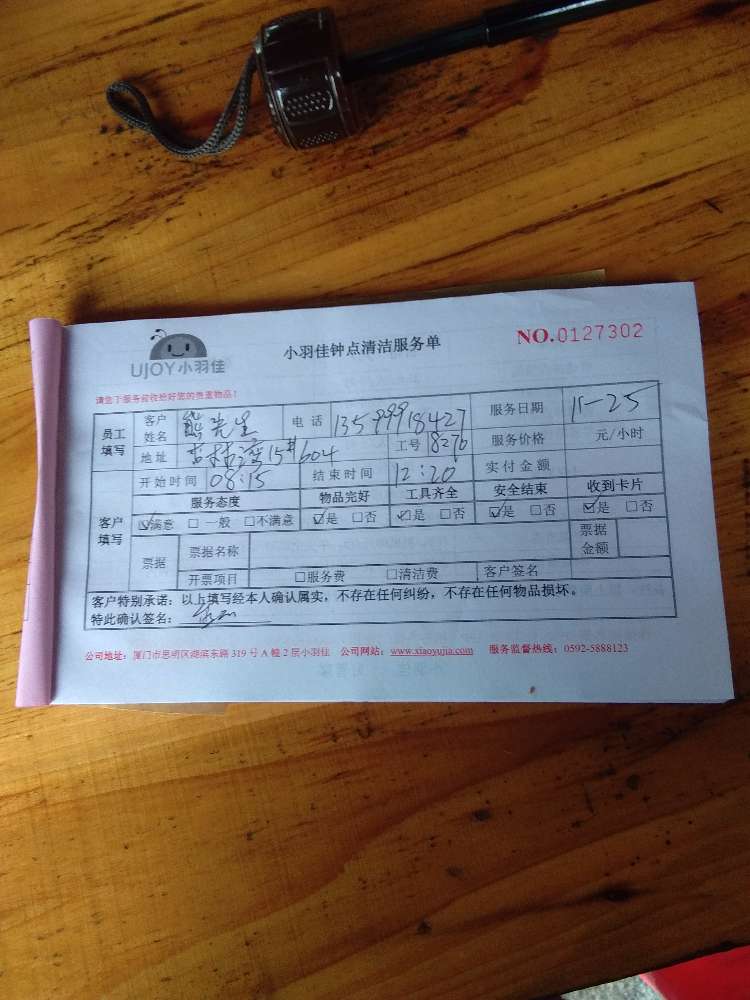 UJOY小羽佳
小羽佳钟点清洁服务单
NO.0127302
请您于服务前收拾好您的贵重物品!
员工填写 客户姓名 熊先生 电话 13599918427 服务日期 11-25
地址 15#604 工号 8276 服务价格 元/小时
客户填写 开始时间 08:15 结束时间 12:20 实付金额
服务态度 物品完好 工具齐全 安全结束 收到卡片
☑满意 □一般 □不满意 ☑是 □否 ☑是 □否 ☑是 □否 ☑是 □否
票据 票据名称 票据金额
开票项目 □服务费 □清洁费 客户签名
客户特别承诺:以上填写经本人确认属实,不存在任何纠纷,不存在任何物品损坏。
特此确认签名:
公司地址:厦门市思明区湖滨东路319号A幢2层小羽佳 公司网站:www.xiaoyujia.com 服务监督热线:0592-5888123